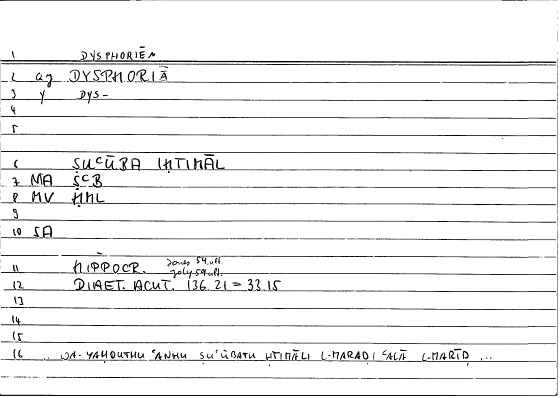 1 DYSPHORIĒA
2 ag DYSPHORIĀ
3 y DYS-
4
5
6 ṢUᶜŪBA IḤTIMĀL
7 MA ṢᶜB
8 MV ḤML
9
10 SA
11 HIPPOCR. Jones 59.ult. Joly 59.ult.
12 DIAET. ACUT. 136.21 = 33.15
13
14
15
16 .. WA-YAḤDUTHU ᶜANHU ṢUᶜŪBATU ḤTIMĀLI L-MARAḌI ᶜALĀ L-MARĪḌ ...